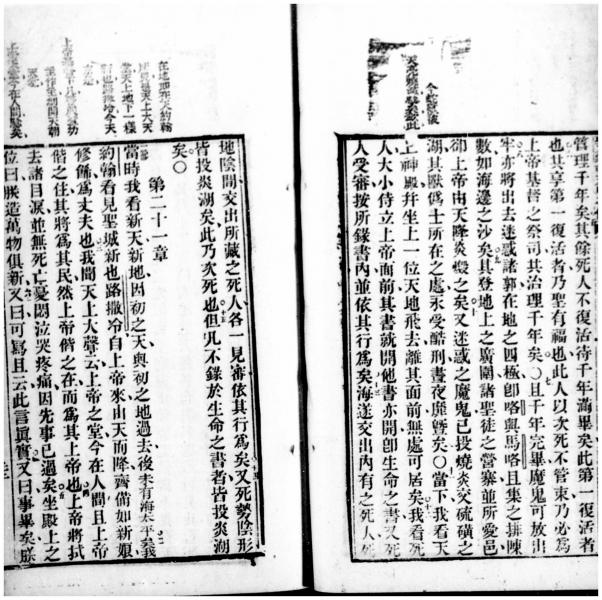 管理千年矣其餘死人不復活待千年滿畢矣此第一復活者
也其享第一復活者乃聖有福也此人以次死不管束乃必爲
上帝基督之祭司其治理千年矣〇且千年完畢魔鬼可放出
牢亦將出去迷惑諸郭在地之四極卽咯與馬咯且集之排陳
數如海邊之沙矣其登地上之廣圍諸聖徒之營寨並所愛邑
卻上帝由天降炎燬之矣又迷惑之魔鬼已投燒炎交硫磺之
湖其獸僞士所在之處永受酷刑晝夜靡曁矣〇當下我看天
上神殿幷坐上一位天地飛去離其面前無處可居矣我看死
人大小侍立上帝面前其書就開他書亦開卽生命之書又死
人受審按所錄書內並依其行爲矣海遂交出內有之死人死
在地如在天約翰
所見是天上大天
堂天上地下一樣
地陰間交出所藏之死人各一見審依其行爲矣又死勢陰形
皆投炎湖矣此乃次死也但凡不錄於生命之書者皆投炎湖
矣〇
第二十一章
當時我看新天新地因初之天與初之地過去後未有海太平義
約翰看見聖城新也路撒冷自上帝來由天而降齊備如新娘
修飾爲丈夫也我聞天上大聲云上帝之堂今在人間且上帝
偕之住其將爲其民然上帝偕之在而爲其上帝也上帝將拭
去諸目淚並無死亡憂悶泣哭疼痛因先事已過矣坐殿上之
位曰朕造萬物俱新又曰可寫且云此言眞實又曰事畢矣朕